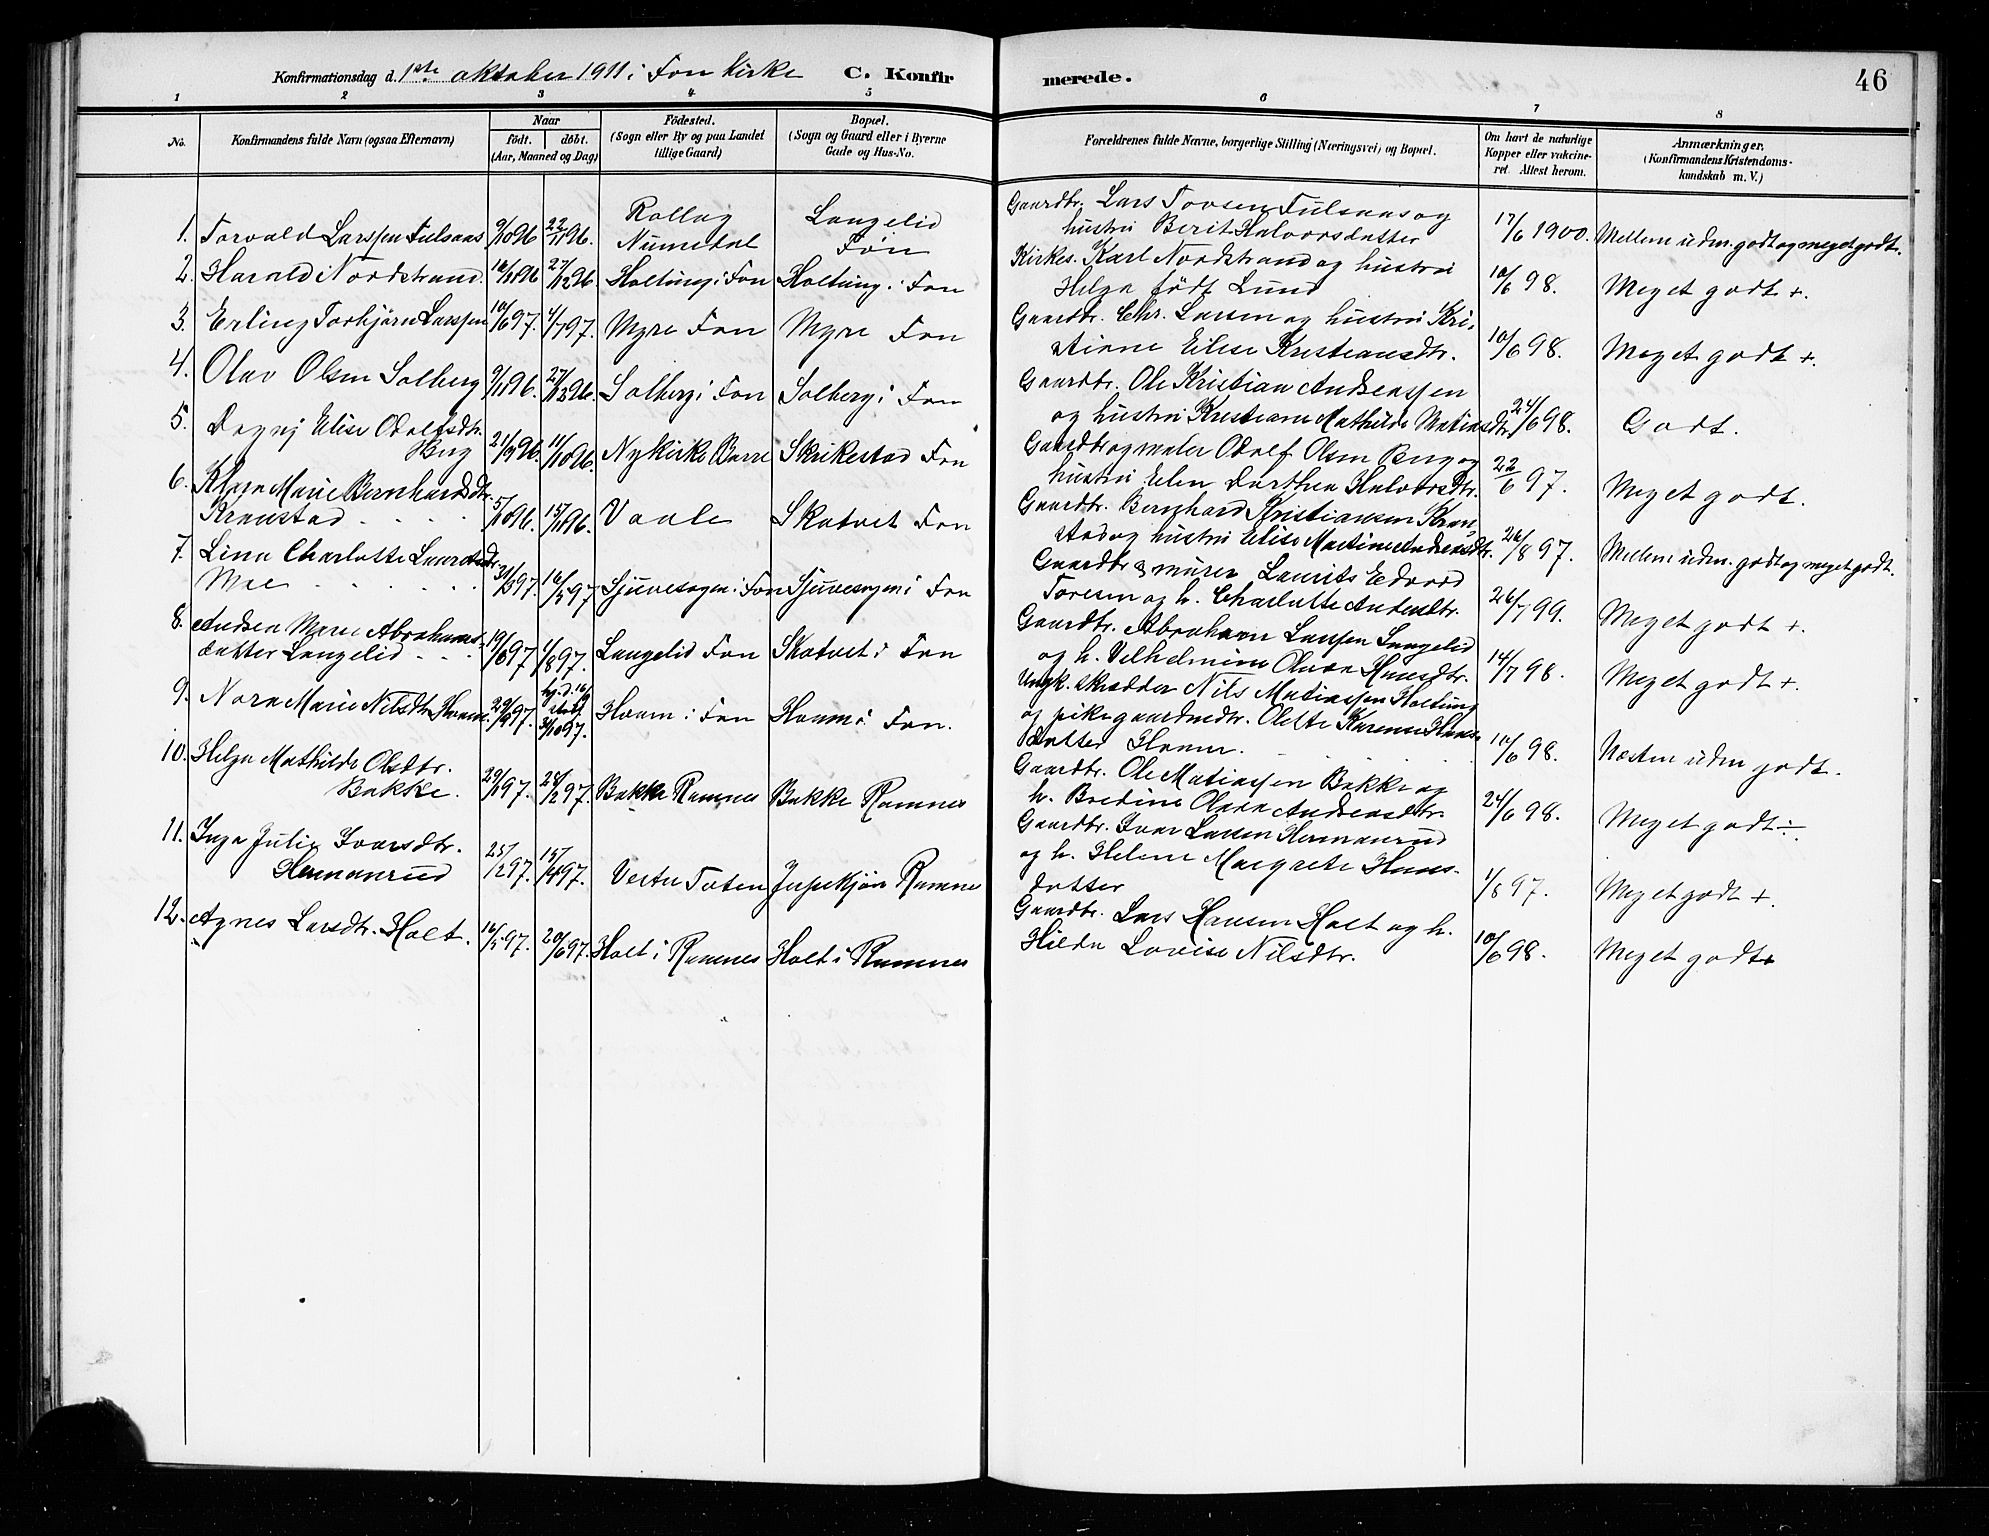 Konfirmationsdag d. 1ste oktober 1911 i Fon Kirke C. Konfir
merede. 46
1 2 3 4 5 6 7 8
No. Konfirmandens fulde Navn (ogsaa Efternavn)
Naar
født. døbt.
(Aar, Maaned og Dag)
Födested.
(Sogn eller By og paa Landet
tillige Gaard)
Bopæl.
(Sogn og Gaard eller i Byerne
Gade og Hus-No.
Forældrenes fulde Navne, borgerlige Stilling (Næringsvei) og Bopæl.
Om havt de naturlige
Kopper eller vakcine-
ret. Attest herom.
Anmærkninger.
(Konfirmandens Kristendoms-
kundskab m. V.)
1. Torvald Larssen Fulsaas 9/10 96 22/11 96. Rollag
Numedal
Langelid
Fon
Gaardbr. Lars Tovsen Fulsaas og
hustru Berit Halvorsdatter
17/6 1900. Mellem uden. godt og meget godt.
2. Harald Nordstrand. 16/11 96 27/12 96. Holtung i Fon Holtung i Fon
Kirkes. Karl Nordstrand og hustru
Helga født Lund
10/6 98. Meget godt +.
3. Erling Torbjørn Larssen 10/6 97. 4/7 97. Myre Fon Myre Fon
Gaardbr. Chr. Larsen og hustru Kri-
stiane Elise Kristiansdtr.
10/6 98. Meget godt +.
4. Olav Olsen Solberg 9/11 96. 27/12 96. Solberg i Fon Solberg i Fon
Gaardbr. Ole Kristian Andreassen
og hustru Kristiane Mathilde Matiasdtr.
24/6 98. Godt.
5. Dagny Elise Odolfsdtr.
Berg
96. 11/10 96. Nykirke Borre Skrikestad Fon
Gaardbr og maler Odolf Olsen Berg og
hustru Elen Dorthea Halvorsdtr.
22/6 97. Meget godt.
6. Klara Marie Bernhardsdtr.
Kranstad
5/10 96. 15/11 96. Vaale Skatvet Fon
Gaardbr. Bernhard Kristiansen Kran
stad og hustru Elise Martine Andreasdtr.
26/8 97. Mellem uden. godt og meget godt.
7. Lina Charlotte Lauritsdtr.
Moe
31/3 97. 16/5 97 Sjuvesogen i Fon Sjuvesogen i Fon
Gaardbr & murer Laurits Edvard
Toresen og h. Charlotte Andersdtr.
26/7 99. Meget godt +.
8. Andrea Marie Abrahams-
datter Langelid
19/6 97 1/8 97. Langelid Fon Skatvet i Fon
Gaardbr. Abraham Larssen Langelid
og h. Vilhelmine Olava Hansdtr.
14/7 98. Meget godt +.
9. Nora Marie Nilsdtr. Hvam. 97. hj.d. 16/9
stadf.
31/10 97. Hvam i Fon Hvam i Fon.
Ungk. skrædder Nils Matiassen Holtung
og pike gaardmdtr. Olette Karense Hans-
datter Hvam.
10/6 98. Næsten uden godt.
10. Helga Mathilde Olsdtr.
Bakke.
29/11 97. 28/12 97. Bakke Ramnes Bakke Ramnes
Gaardbr. Ole Matiassen Bakke og
h. Bredine Olava Andreasdtr.
24/6 98. Meget godt ÷
11. Inga Julie Ivarsdtr.
Hermanrud
25/12 97. 15/4 97. Vestre Toten Ramnes
Gaardbr. Ivar Larsen Hermanrud
og h. Helene Margrete Hans-
datter
1/8 97. Meget godt +.
12. Agnes Larsdtr. Holt. 16/5 97. 20/6 97. Holt i Ramnes Holt i Ramnes
Gaardbr. Lars Hansen Holt og h.
Hilda Lovise Nilsdtr.
10/6 98. Meget godt +